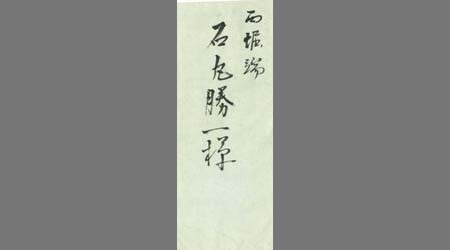 西堀端
石丸勝一様